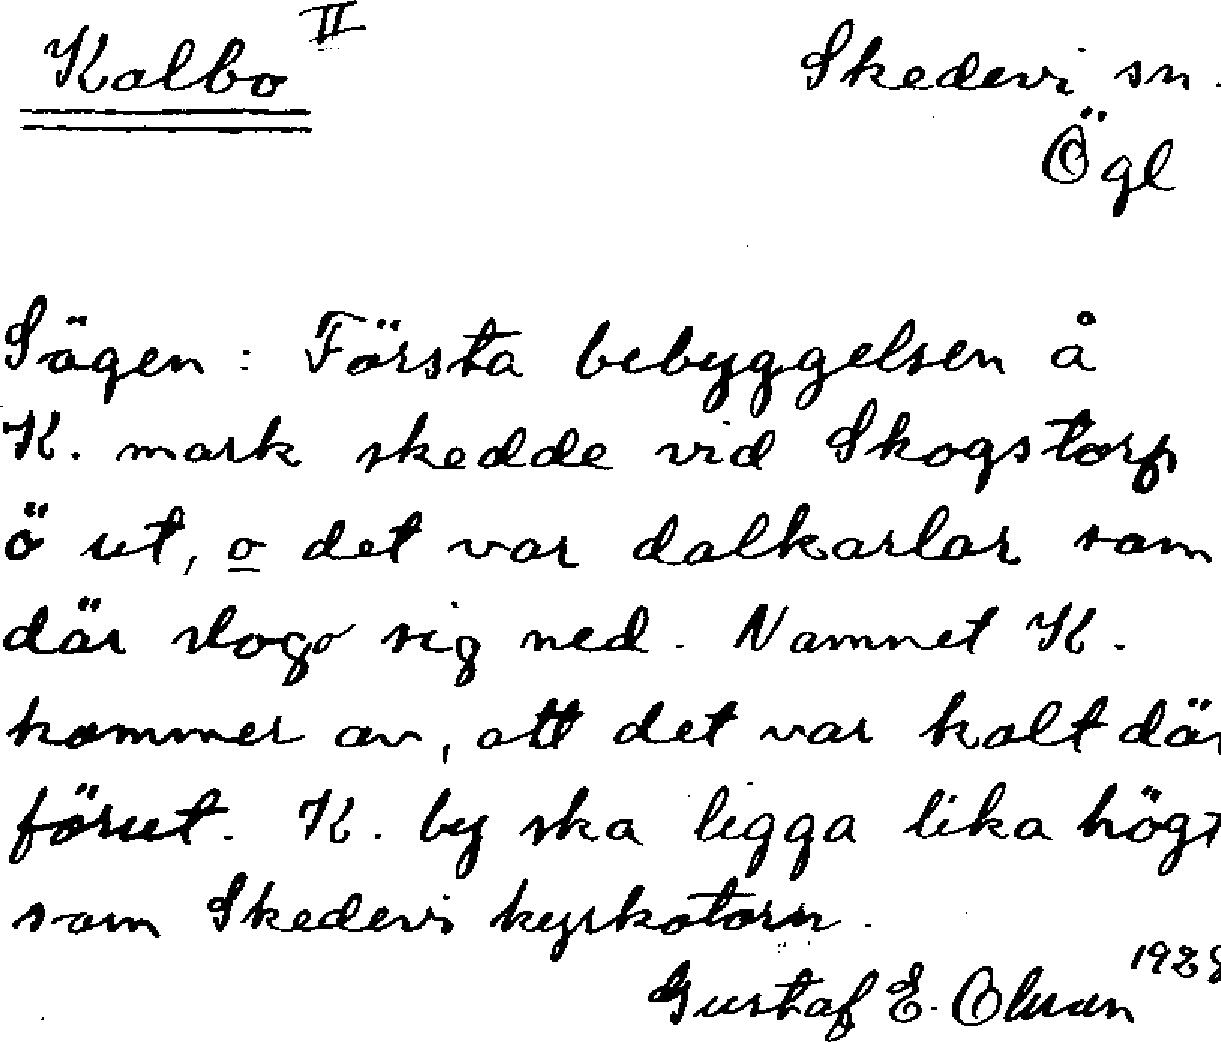 Kalbo II
Skedevi sn.
Ögl
Sägen: Första bebyggelsen å
K. mark skedde vid Skogstorp
ö ut, o det var dalkarlar som
där slogo sig ned. Namnet K.
kommer av, att det var kalt där
förut. K. by ska ligga lika högt
som Skedevi kyrkotorn.
Gustaf E. Olsson